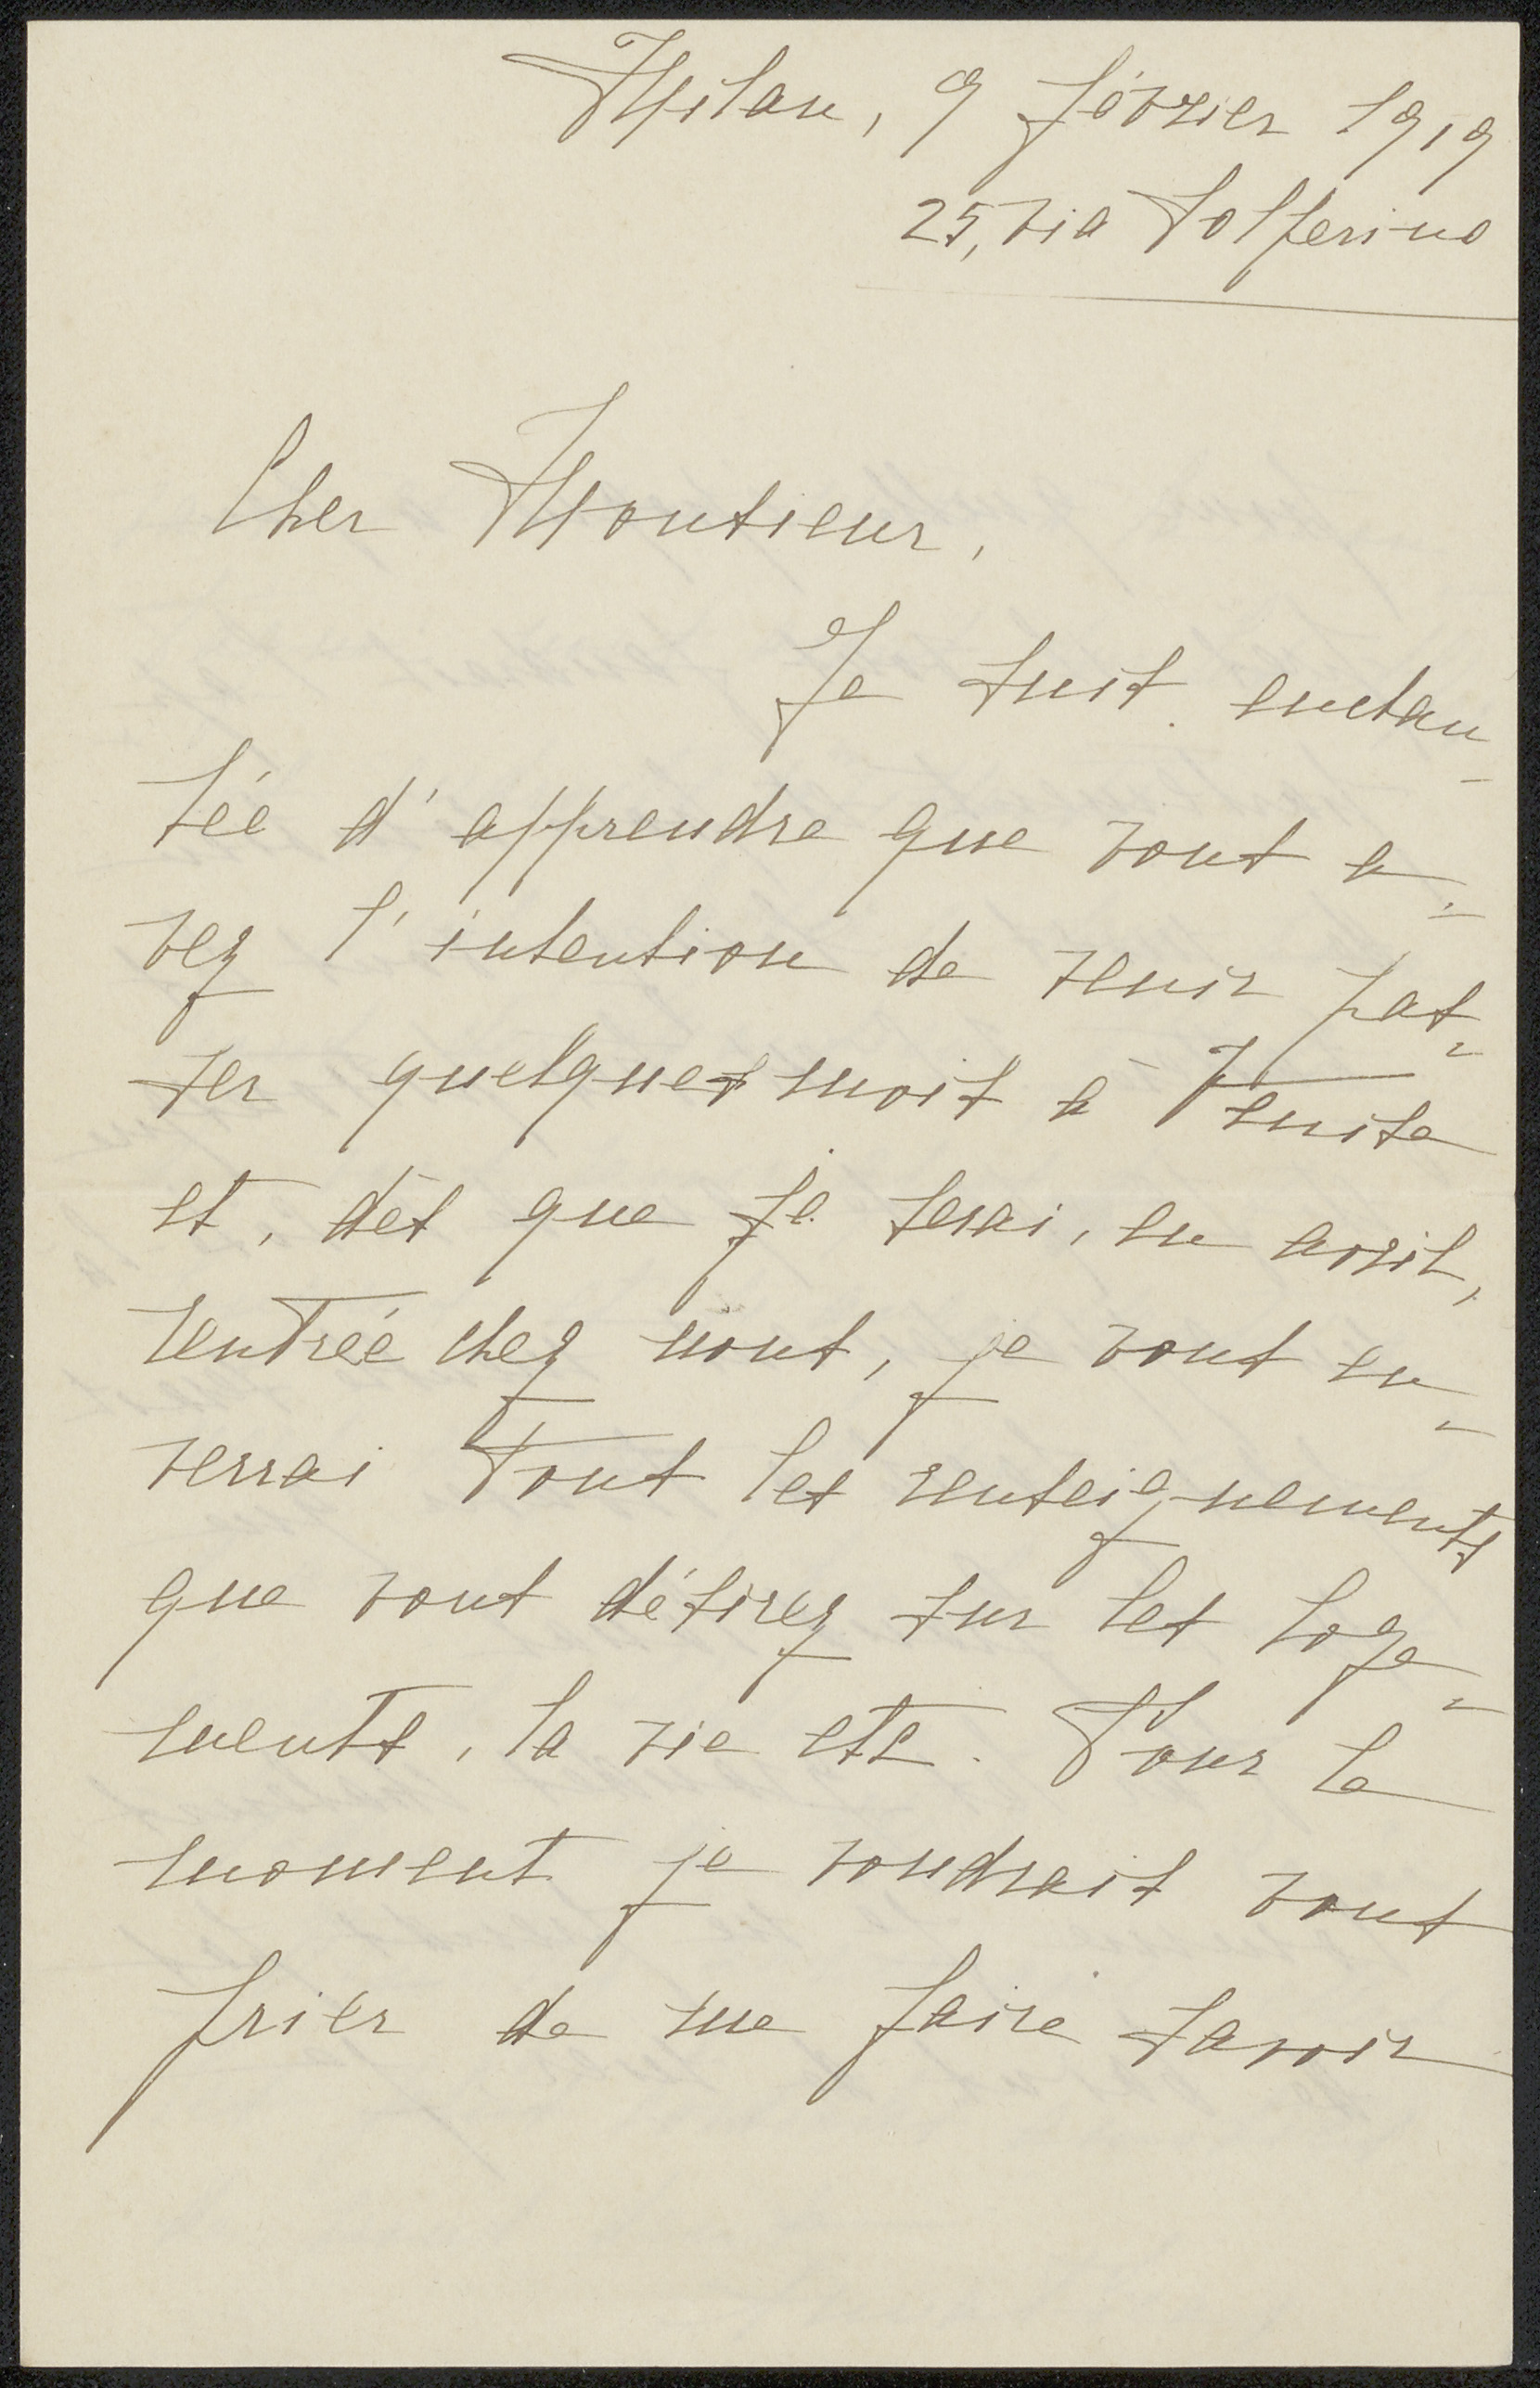 Milan, 9 février 1919
25, via Solferino
Cher Monsieur,
Je suis enchan-
tée d'apprendre que vous a-
vez l'intention de venir pas-
ser quelques mois à Venise
et, dès que je serai, en avril,
rentrée chez nous, je vous en-
verrai tous les renseignements
que vous désirez sur les loge-
ments, la vie etc. Pour le
moment je voudrais vous
prier de me faire savoir